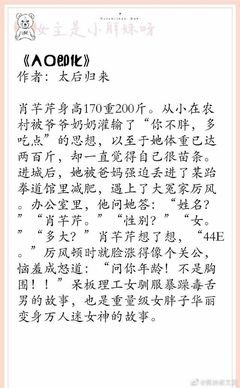 女主是小胖妹呀
《入口即化》
作者：太后归来
肖芊芹身高170重200斤。从小在农
村被爷爷奶奶灌输了“你不胖，多
吃点”的思想，以至于她体重已达
两百斤，却一直觉得自己很苗条。
进城后，她被爸妈强迫丢进了某跆
拳道馆里减肥，遇上了大冤家厉
风。办公室里，他问她答：“姓名？
”“肖芊芹。”“性别？”“女。
”“多大？”肖芊芹想了想，“44E
。”厉风顿时就脸涨得像个关公，
恼羞成怒道：“问你年龄！不是胸
围！！”呆板理工女驯服暴躁毒舌
男的故事，也是重量级女胖子华丽
变身万人迷女神的故事。